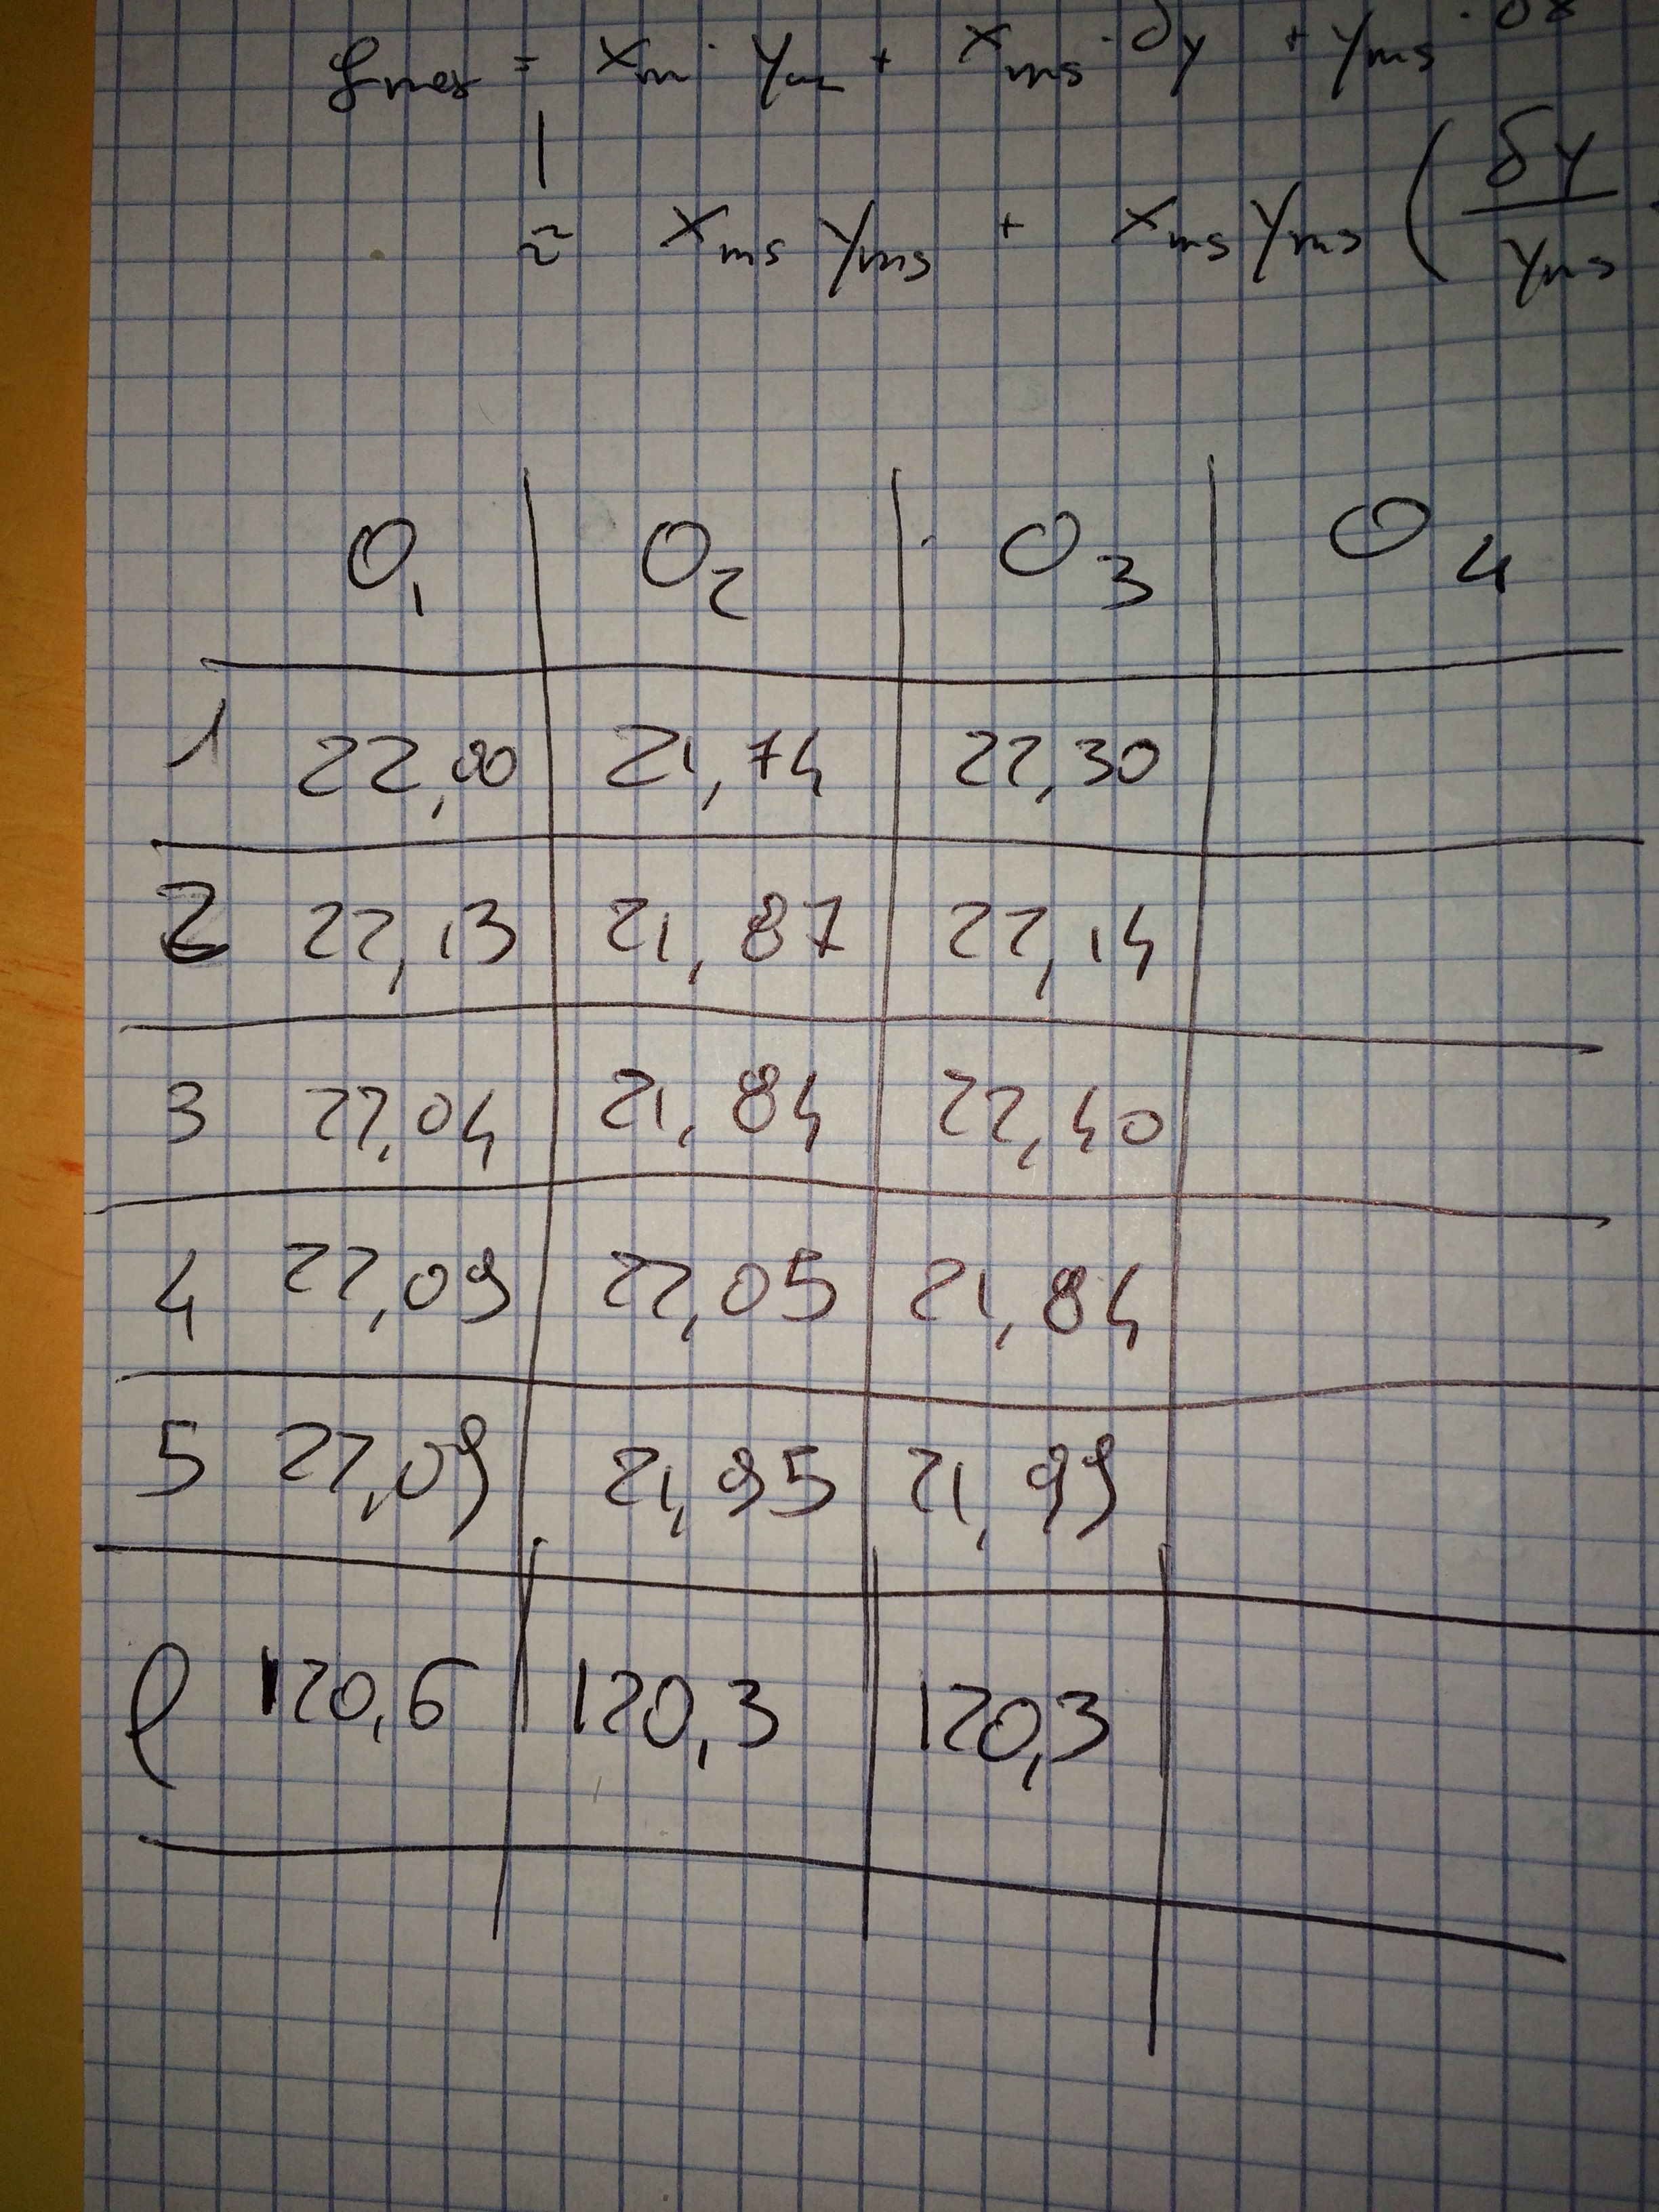 g_mes = x_m · y_m + x_ms · δy + y_ms · δx
≈ x_ms y_ms + x_ms y_ms ( δy / y_ms
O₁ O₂ O₃ O₄
1 22,00 21,74 22,30
2 22,13 21,87 22,14
3 22,04 21,84 22,40
4 22,09 22,05 21,84
5 22,09 21,95 21,99
l 120,6 120,3 120,3